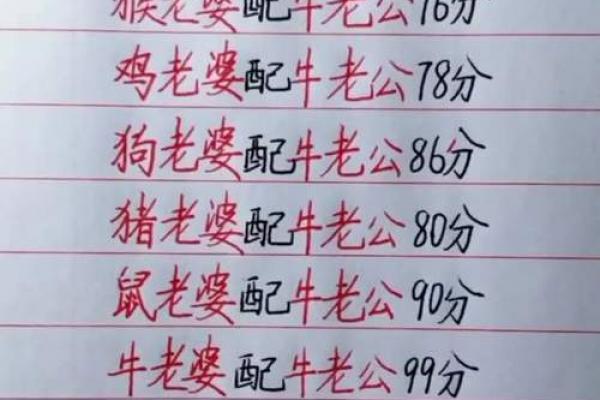 猴老婆配牛老公76分
鸡老婆配牛老公78分
狗老婆配牛老公86分
猪老婆配牛老公80分
鼠老婆配牛老公90分
牛老婆配牛老公99分